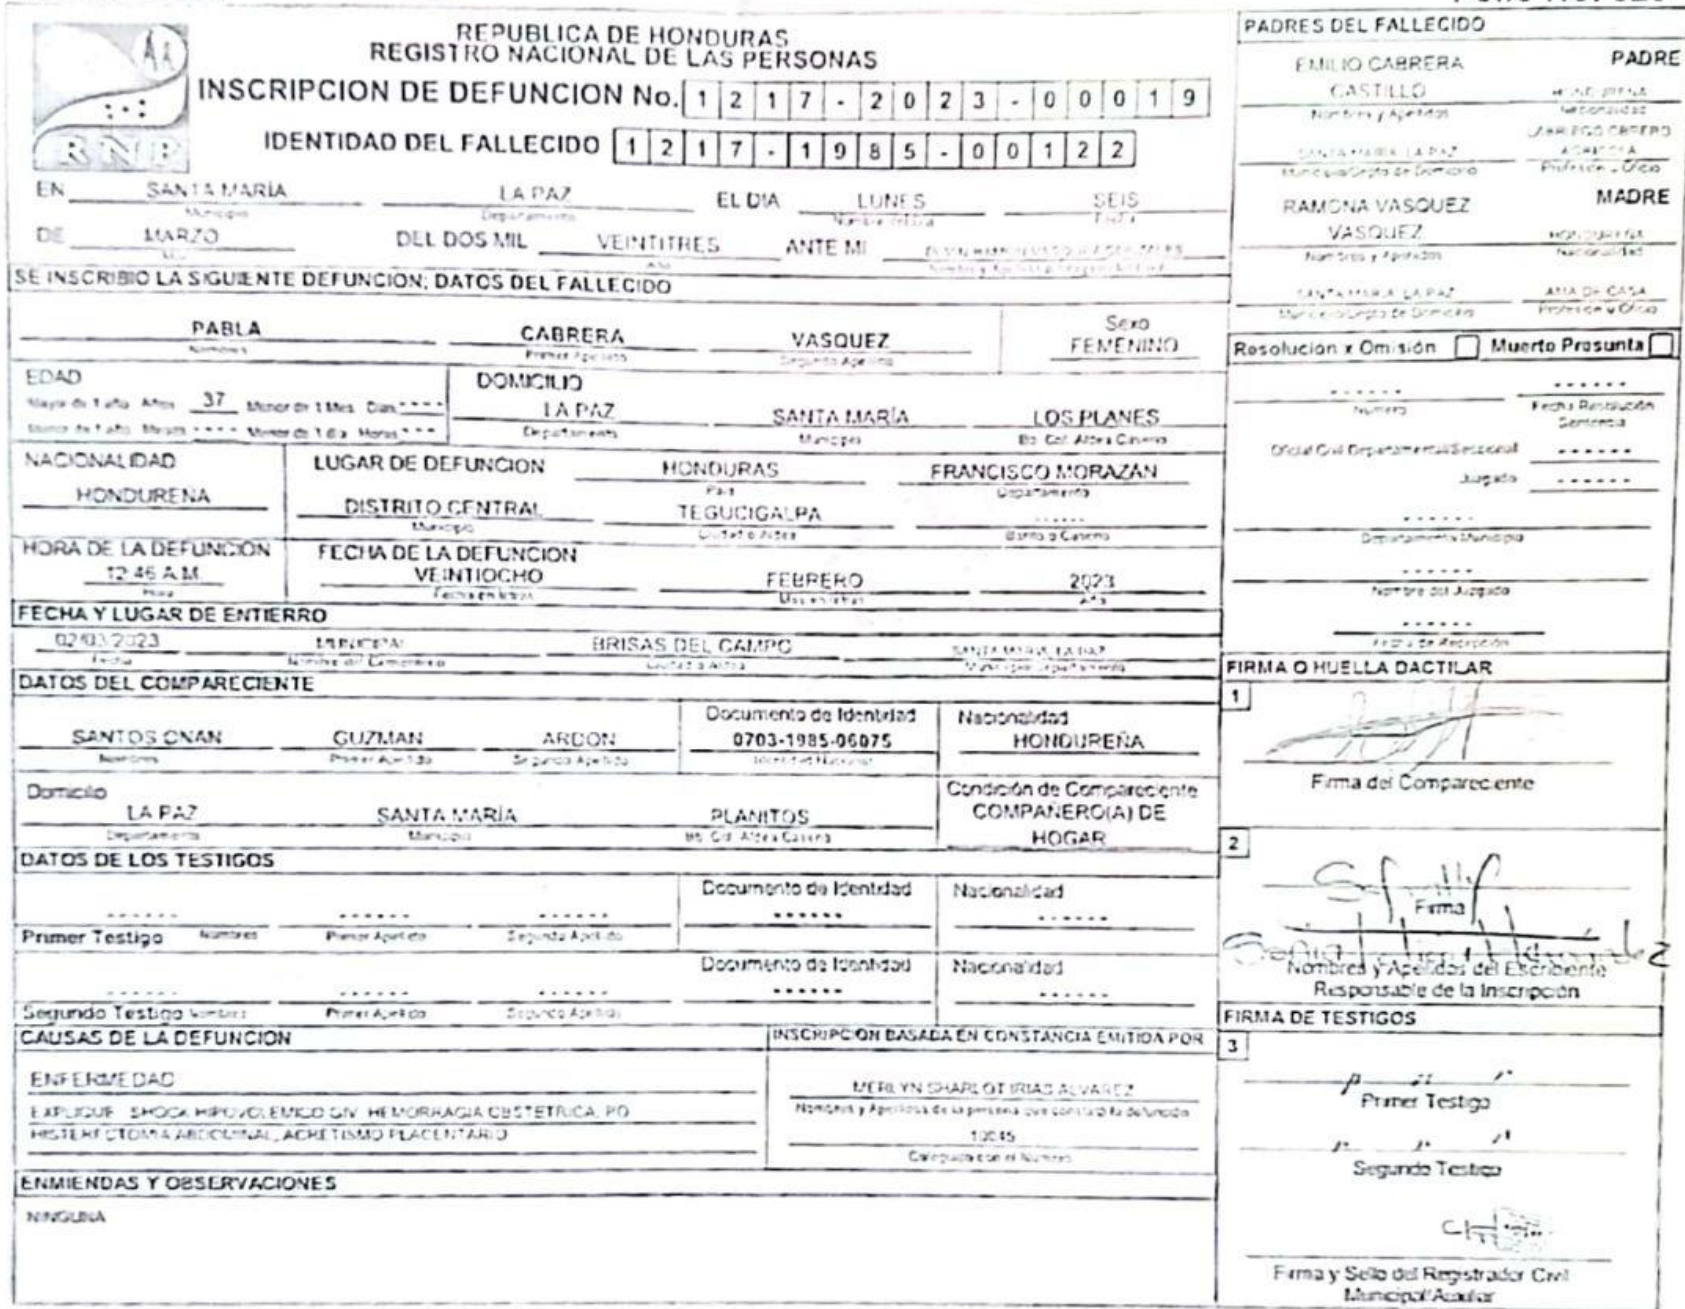 REPUBLICA DE HONDURAS
REGISTRO NACIONAL DE LAS PERSONAS
INSCRIPCION DE DEFUNCION No. 1217-2023-00019
IDENTIDAD DEL FALLECIDO 1217-1985-00122
RNP
EN SANTA MARÍA LA PAZ EL DIA LUNES SEIS
Municipio Departamento
DE MARZO DEL DOS MIL VEINTITRES ANTE MI
SE INSCRIBIO LA SIGUIENTE DEFUNCION; DATOS DEL FALLECIDO
PABLA CABRERA VASQUEZ Sexo FEMENINO
Nombres Primer Apellido Segundo Apellido
EDAD
Mayor de 1 año Años 37 Menor de 1 Mes Dias ----
Menor de 1 año Meses ---- Menor de 1 dia Horas ---
DOMICILIO
LA PAZ SANTA MARÍA LOS PLANES
Departamento Municipio Bo. Col. Aldea Caserio
NACIONALIDAD
HONDUREÑA
LUGAR DE DEFUNCION HONDURAS FRANCISCO MORAZAN
Pais Departamento
DISTRITO CENTRAL TEGUCIGALPA ------
Municipio Ciudad o Aldea Barrio o Caserio
HORA DE LA DEFUNCION
12:46 A.M.
Hora
FECHA DE LA DEFUNCION
VEINTIOCHO FEBRERO 2023
Fecha en letras Mes en letras Año
FECHA Y LUGAR DE ENTIERRO
02/03/2023 MUNICIPAL BRISAS DEL CAMPO SANTA MARIA, LA PAZ
Fecha Nombre del Cementerio Ciudad o Aldea Municipio Departamento
DATOS DEL COMPARECIENTE
SANTOS ONAN GUZMAN ARDON
Nombres Primer Apellido Segundo Apellido
Documento de Identidad
0703-1985-06075
Identidad Nacional
Nacionalidad
HONDUREÑA
Domicilio
LA PAZ SANTA MARÍA PLANITOS
Departamento Municipio Bo. Col. Aldea Caserio
Condición de Compareciente
COMPAÑERO(A) DE
HOGAR
DATOS DE LOS TESTIGOS
Documento de Identidad Nacionalidad
------ ------ ------ ------ ------
Primer Testigo Nombres Primer Apellido Segundo Apellido
Documento de Identidad Nacionalidad
------ ------ ------ ------ ------
Segundo Testigo Nombres Primer Apellido Segundo Apellido
CAUSAS DE LA DEFUNCION
ENFERMEDAD
EXPLIQUE: SHOCK HIPOVOLEMICO GIV, HEMORRAGIA OBSTETRICA, PO
HISTERECTOMIA ABDOMINAL, ACRETISMO PLACENTARIO
INSCRIPCION BASADA EN CONSTANCIA EMITIDA POR
MERLYN SHARLOT IRIAS ALVAREZ
Nombres y Apellidos de la persona que constató la defunción
10045
Colegiada con el Número
ENMIENDAS Y OBSERVACIONES
NINGUNA
PADRES DEL FALLECIDO
EMILIO CABRERA PADRE
CASTILLO HONDUREÑA
Nombres y Apellidos Nacionalidad
LABRIEGO OBRERO
SANTA MARIA, LA PAZ AGRICOLA
Municipio/Depto de Domicilio Profesión u Oficio
MADRE
RAMONA VASQUEZ
VASQUEZ HONDUREÑA
Nombres y Apellidos Nacionalidad
SANTA MARIA, LA PAZ AMA DE CASA
Municipio/Depto de Domicilio Profesión u Oficio
Resolución x Omisión Muerte Presunta
------ ------
Número Fecha Resolución
Sentencia
Oficial Civil Departamental/Seccional ------
Juzgado ------
------
Departamento Municipio
------
Nombre del Juzgado
------
Fecha de Recepción
FIRMA O HUELLA DACTILAR
1
Firma del Compareciente
2
Firma
Nombres y Apellidos del Escribiente
Responsable de la Inscripción
FIRMA DE TESTIGOS
3
Primer Testigo
Segundo Testigo
Firma y Sello del Registrador Civil
Municipal/Auxiliar